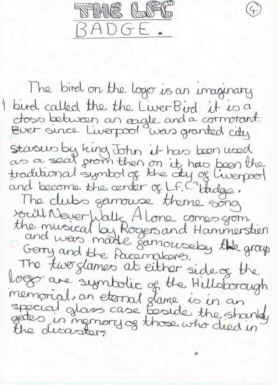 THE LFC
4
BADGE.
The bird on the logo is an imaginary
bird called the the LiverBird it is a
cross between an eagle and a cormorant
Ever since Liverpool was granted city
status by King John it has been used
as a seal from then on it has been the
traditional symbol of the city of Liverpool
and become the center of L.F.C badge.
The clubs famouse theme song
You'll Never Walk Alone comes from
the musical by Rogers and Hammerstien
and was made famouse by the group
Gerry and the Pacemakers.
The two flames at either side of the
logo are symbolic of the Hillsborough
memorial, an eternal flame is in an
special glass case beside the shankly
gates in memory of those who died in
the disaster.